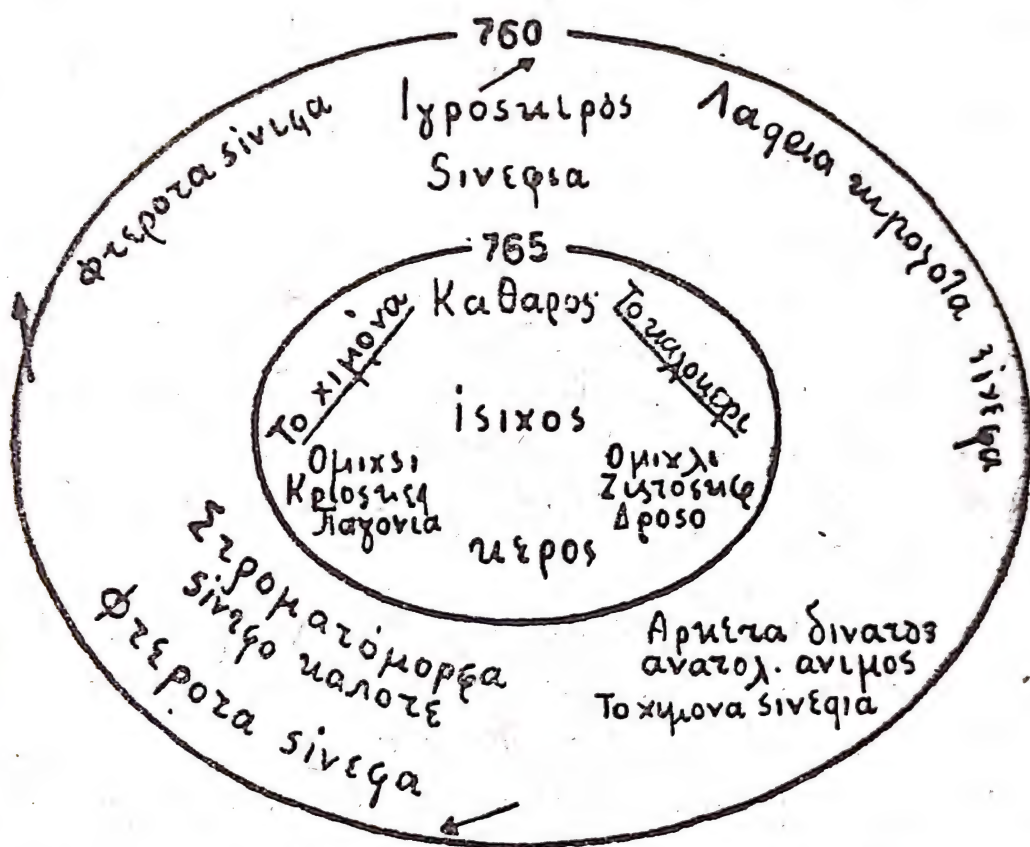 760
Ιγροsκιρὸs
Sινεφια
Φτεροτα sίνεφα
Λαφρια κιμαζοτα sίνεφα
765
Καθαροs
Το χιμόνα
Το καλοκερι
ίsιχοs
Ομιχsι
Κρίοsκερ
Παγονια
Ομιχλι
Ζιsτόsκερ
Δροsο
κεροs
Στροματόμορφα
sίνεφο καποτε
Φτεροτα sίνεφα
Αρκετα δινατοs
ανατολ. ανιμοs
Το χιμονα sινεφια